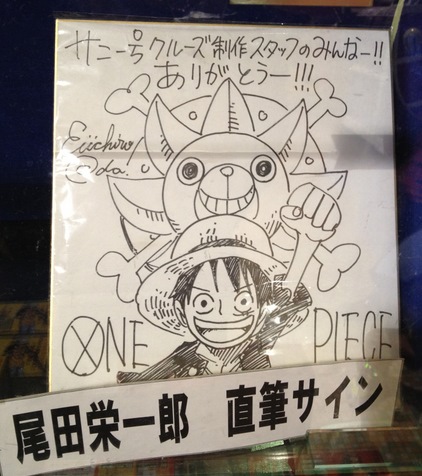 サニー号クルーズ制作スタッフのみんなー!!
ありがとうー!!!
Eiichiro
Oda!
ONE PIECE
尾田栄一郎 直筆サイン